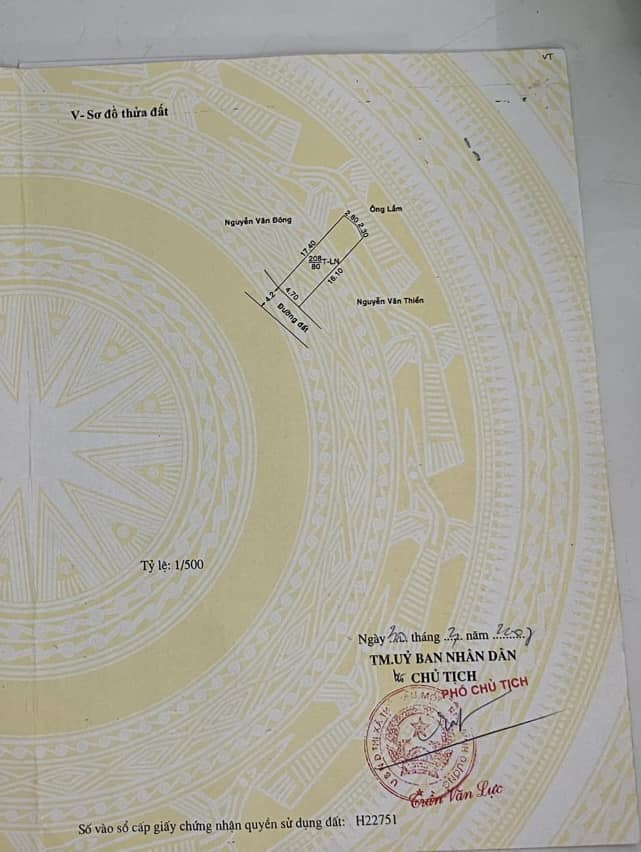 VT
V- Sơ đồ thửa đất
Ông Lắm
Nguyễn Văn Đông
2.60 2.30
17.40
208 T-LN
80
16.10
Nguyễn Văn Thiến
4.70
4.2
Đường đất
Tỷ lệ: 1/500
Ngày tháng năm
TM.UỶ BAN NHÂN DÂN
CHỦ TỊCH
PHÓ CHỦ TỊCH
Trần Văn Lực
Số vào sổ cấp giấy chứng nhận quyền sử dụng đất: H22751